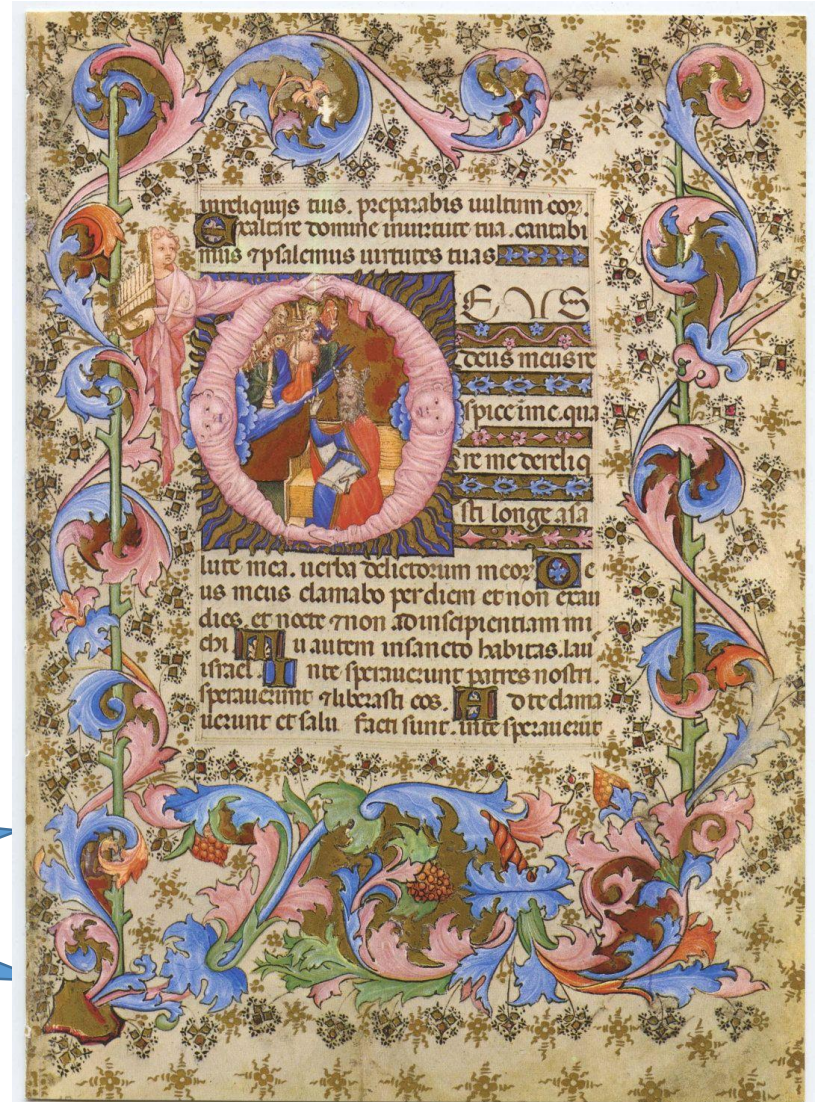 inreliquijs tuis. preparabis uultum eoꝝ.
Exaltare domine inuirtute tua. cantabi
mus ⁊psalemus uirtutes tuas
DEUS
deus meus re
spice ime. qua
re me dereliq
sti longe asa
lute mea. uerba delictorum meoꝝ De
us meus clamabo per diem et non exau
dies. et nocte ⁊non ad insipientiam mi
chi Tu autem insancto habitas. laus
israel. Inte sperauerunt patres nostri.
sperauerunt ⁊liberasti eos. Ad te clama
uerunt et salu facti sunt. inte sperauerūt